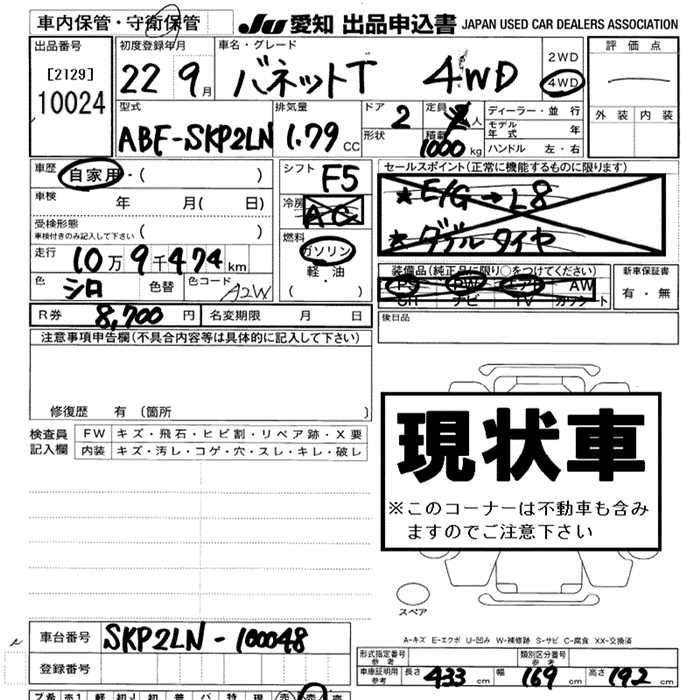 車内保管・守衛保管 JU 愛知 出品申込書 JAPAN USED CAR DEALERS ASSOCIATION
出品番号 初度登録年月 車名・グレード 2WD 評価点
[2129] 22 9月 バネットT 4WD 4WD
10024
型式 排気量 ドア 2 定員 人 ディーラー・並行 外装 内装
ABF-SKP2LN 1.79 CC 形状 積載 1000 kg モデル年式 年
ハンドル 左・右
車歴 自家用・( ) シフト F5 セールスポイント(正常に機能するものに限ります)
車検 年 月( 日) 冷房 AC ★E/G→L8
受検形態 ★ダブルタイヤ
車検付きのみ記入して下さい ( ) 燃料 ガソリン
走行 10万9千474km 軽・油 装備品(純正品に限り○をつけてください) 新車保証書
色 シロ 色替 色コード A2W ( ) PS PW エアB AW 有・無
SR ナビ TV カワシート
R券 8,700円 名変期限 月 日 後日品
注意事項申告欄(不具合内容等は具体的に記入して下さい)
修復歴 有(箇所 )
検査員 FW キズ・飛石・ヒビ割・リペア跡・X要
記入欄 内装 キズ・汚レ・コゲ・穴・スレ・キレ・破レ
現状車
※このコーナーは不動車も含み
ますのでご注意下さい
スペア
A-キズ E-エクボ U-凹み W-補修跡 S-サビ C-腐食 XX-交換済
車台番号 SKP2LN-100048 形式指定番号 参考 類別区分番号 参考
登録番号 車庫証明用 参考 長さ 433 cm 幅 169 cm 高さ 192 cm